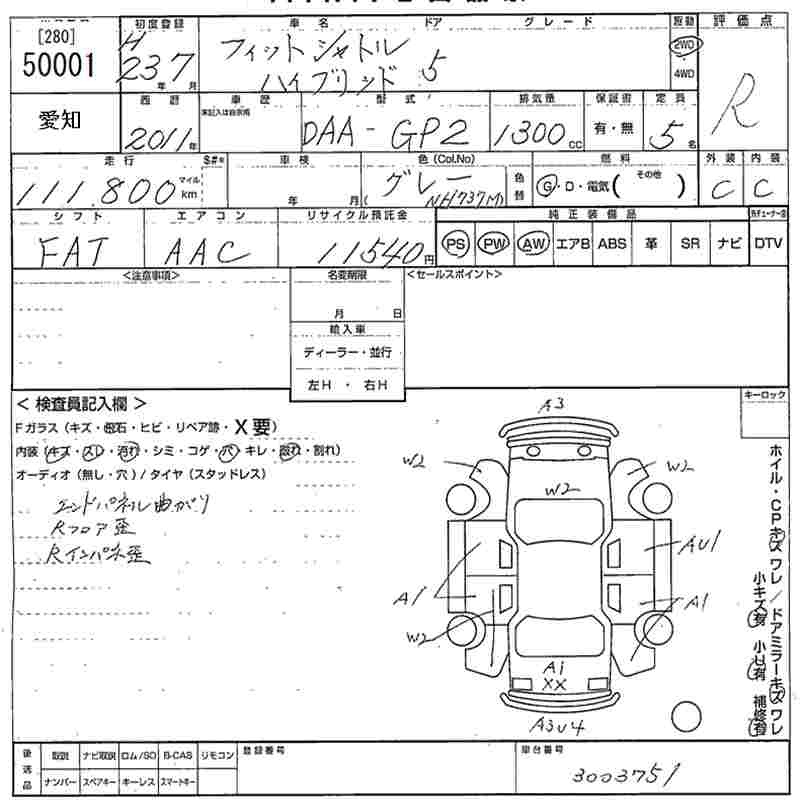 [280]
50001
初度登録
H
23 年 7 月
車名
フィットシャトル
ハイブリッド
ドア
5
グレード
駆動
2WD
4WD
評価点
R
愛知
西暦
2011年
車歴
未記入は自家用
型式
DAA-GP2
排気量
1300cc
保証書
有・無
定員
5名
走行
111,800
マイル
km
$#*
車検
年 月
色(Col.No)
グレー
(NH737M)
色替
燃料
G・D・電気( その他 )
外装
C
内装
C
シフト
FAT
エアコン
AAC
リサイクル預託金
11540円
純正装備品
PS PW AW エアB ABS 革 SR ナビ
DTV
<注意事項>
名変期限
月 日
輸入車
ディーラー・並行
左H ・ 右H
<セールスポイント>
< 検査員記入欄 >
Fガラス(キズ・飛石・ヒビ・リペア跡・X要)
内装(キズ・スレ・汚れ・シミ・コゲ・穴・キレ・割れ)
オーディオ(無し・穴)/タイヤ(スタッドレス)
エンドパネル曲がり
Rフロア歪
Rインパネ歪
キーロック
A3
W2
W2
W2
AU1
A1
A1
W2
A1
XX
A3U4
ホイル・CPキズワレ/ドアミラーキズワレ
小キズ有 小U有 補修有
後送品
取説 ナビ取説 ロム/SD B-CAS リモコン
ナンバー スペアキー キーレス スマートキー
登録番号
車台番号
3003751